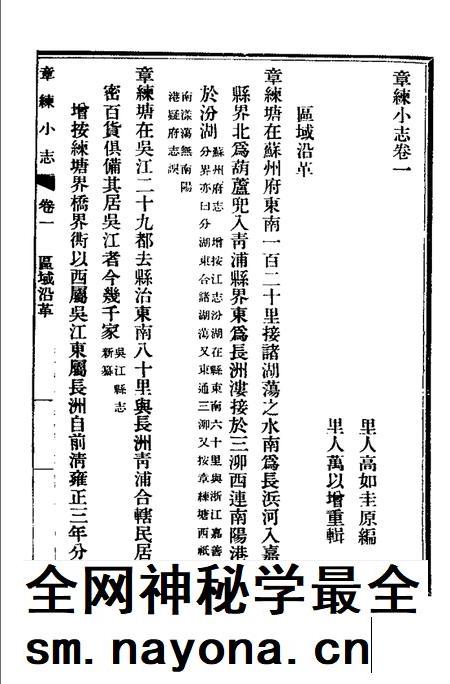 章練小志卷一
里人高如圭原編
里人萬以增重輯
區域沿革
章練塘在蘇州府東南一百二十里接諸湖蕩之水南爲長浜河入嘉
縣界北爲葫蘆兜入靑浦縣界東爲長洲漊接於三泖西連南陽港
於汾湖
蘇州府志 增按江志汾湖在縣東南六十里與浙江嘉善
分界亦曰分湖東合諸湖蕩又東通三泖又按章練塘西祗
南漾蕩無南陽
港疑府志誤
章練塘在吳江二十九都去縣治東南八十里與長洲靑浦合轄民居
密百貨俱備其居吳江者今幾千家
吳江縣志
新纂
增按練塘界橋界衖以西屬吳江東屬長洲自前淸雍正三年分
章練小志 卷一 區域沿革
全网神秘学最全
sm.nayona.cn